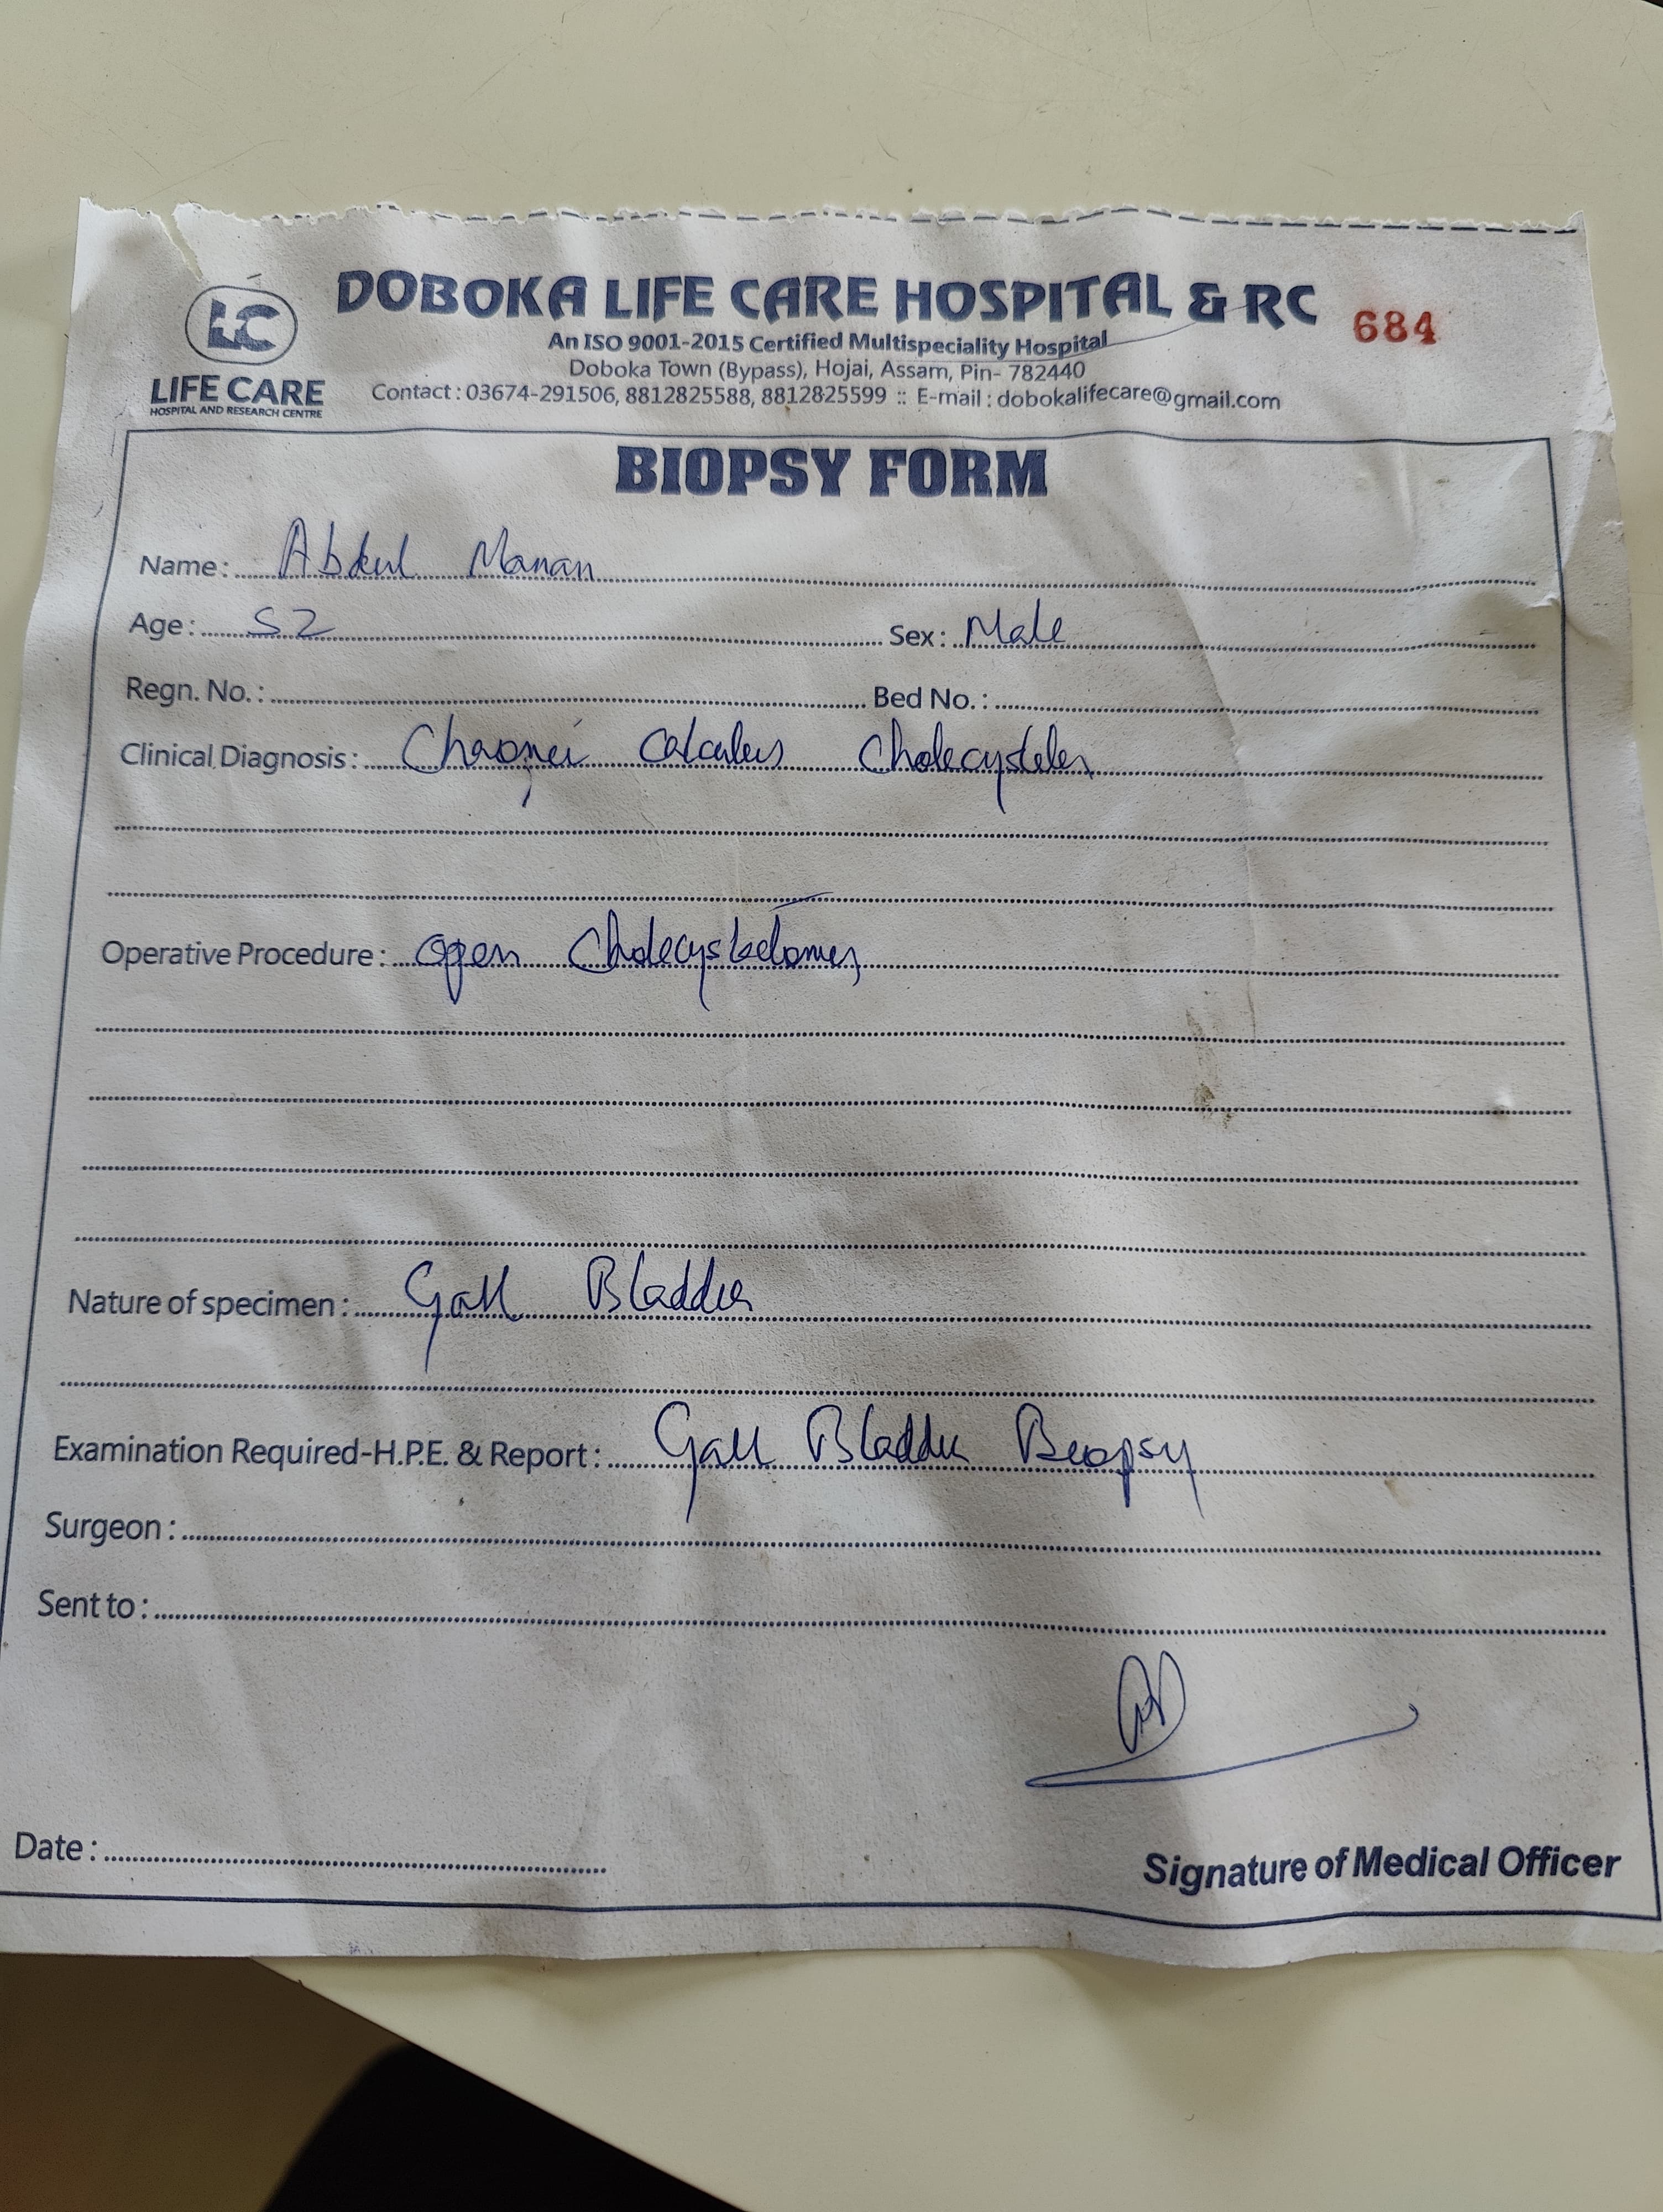 DOBOKA LIFE CARE HOSPITAL & RC
684
An ISO 9001-2015 Certified Multispeciality Hospital
Doboka Town (Bypass), Hojai, Assam, Pin- 782440
Contact : 03674-291506, 8812825588, 8812825599 :: E-mail : dobokalifecare@gmail.com
LC
LIFE CARE
HOSPITAL AND RESEARCH CENTRE
BIOPSY FORM
Name : Abdul Manan
Age : 52 Sex : Male
Regn. No. : Bed No. :
Clinical Diagnosis : Chronic Calculus
Operative Procedure : open
Nature of specimen : Gall Bladder
Examination Required-H.P.E. & Report : Gall Bladder Biopsy
Surgeon :
Sent to :
Date :
Signature of Medical Officer